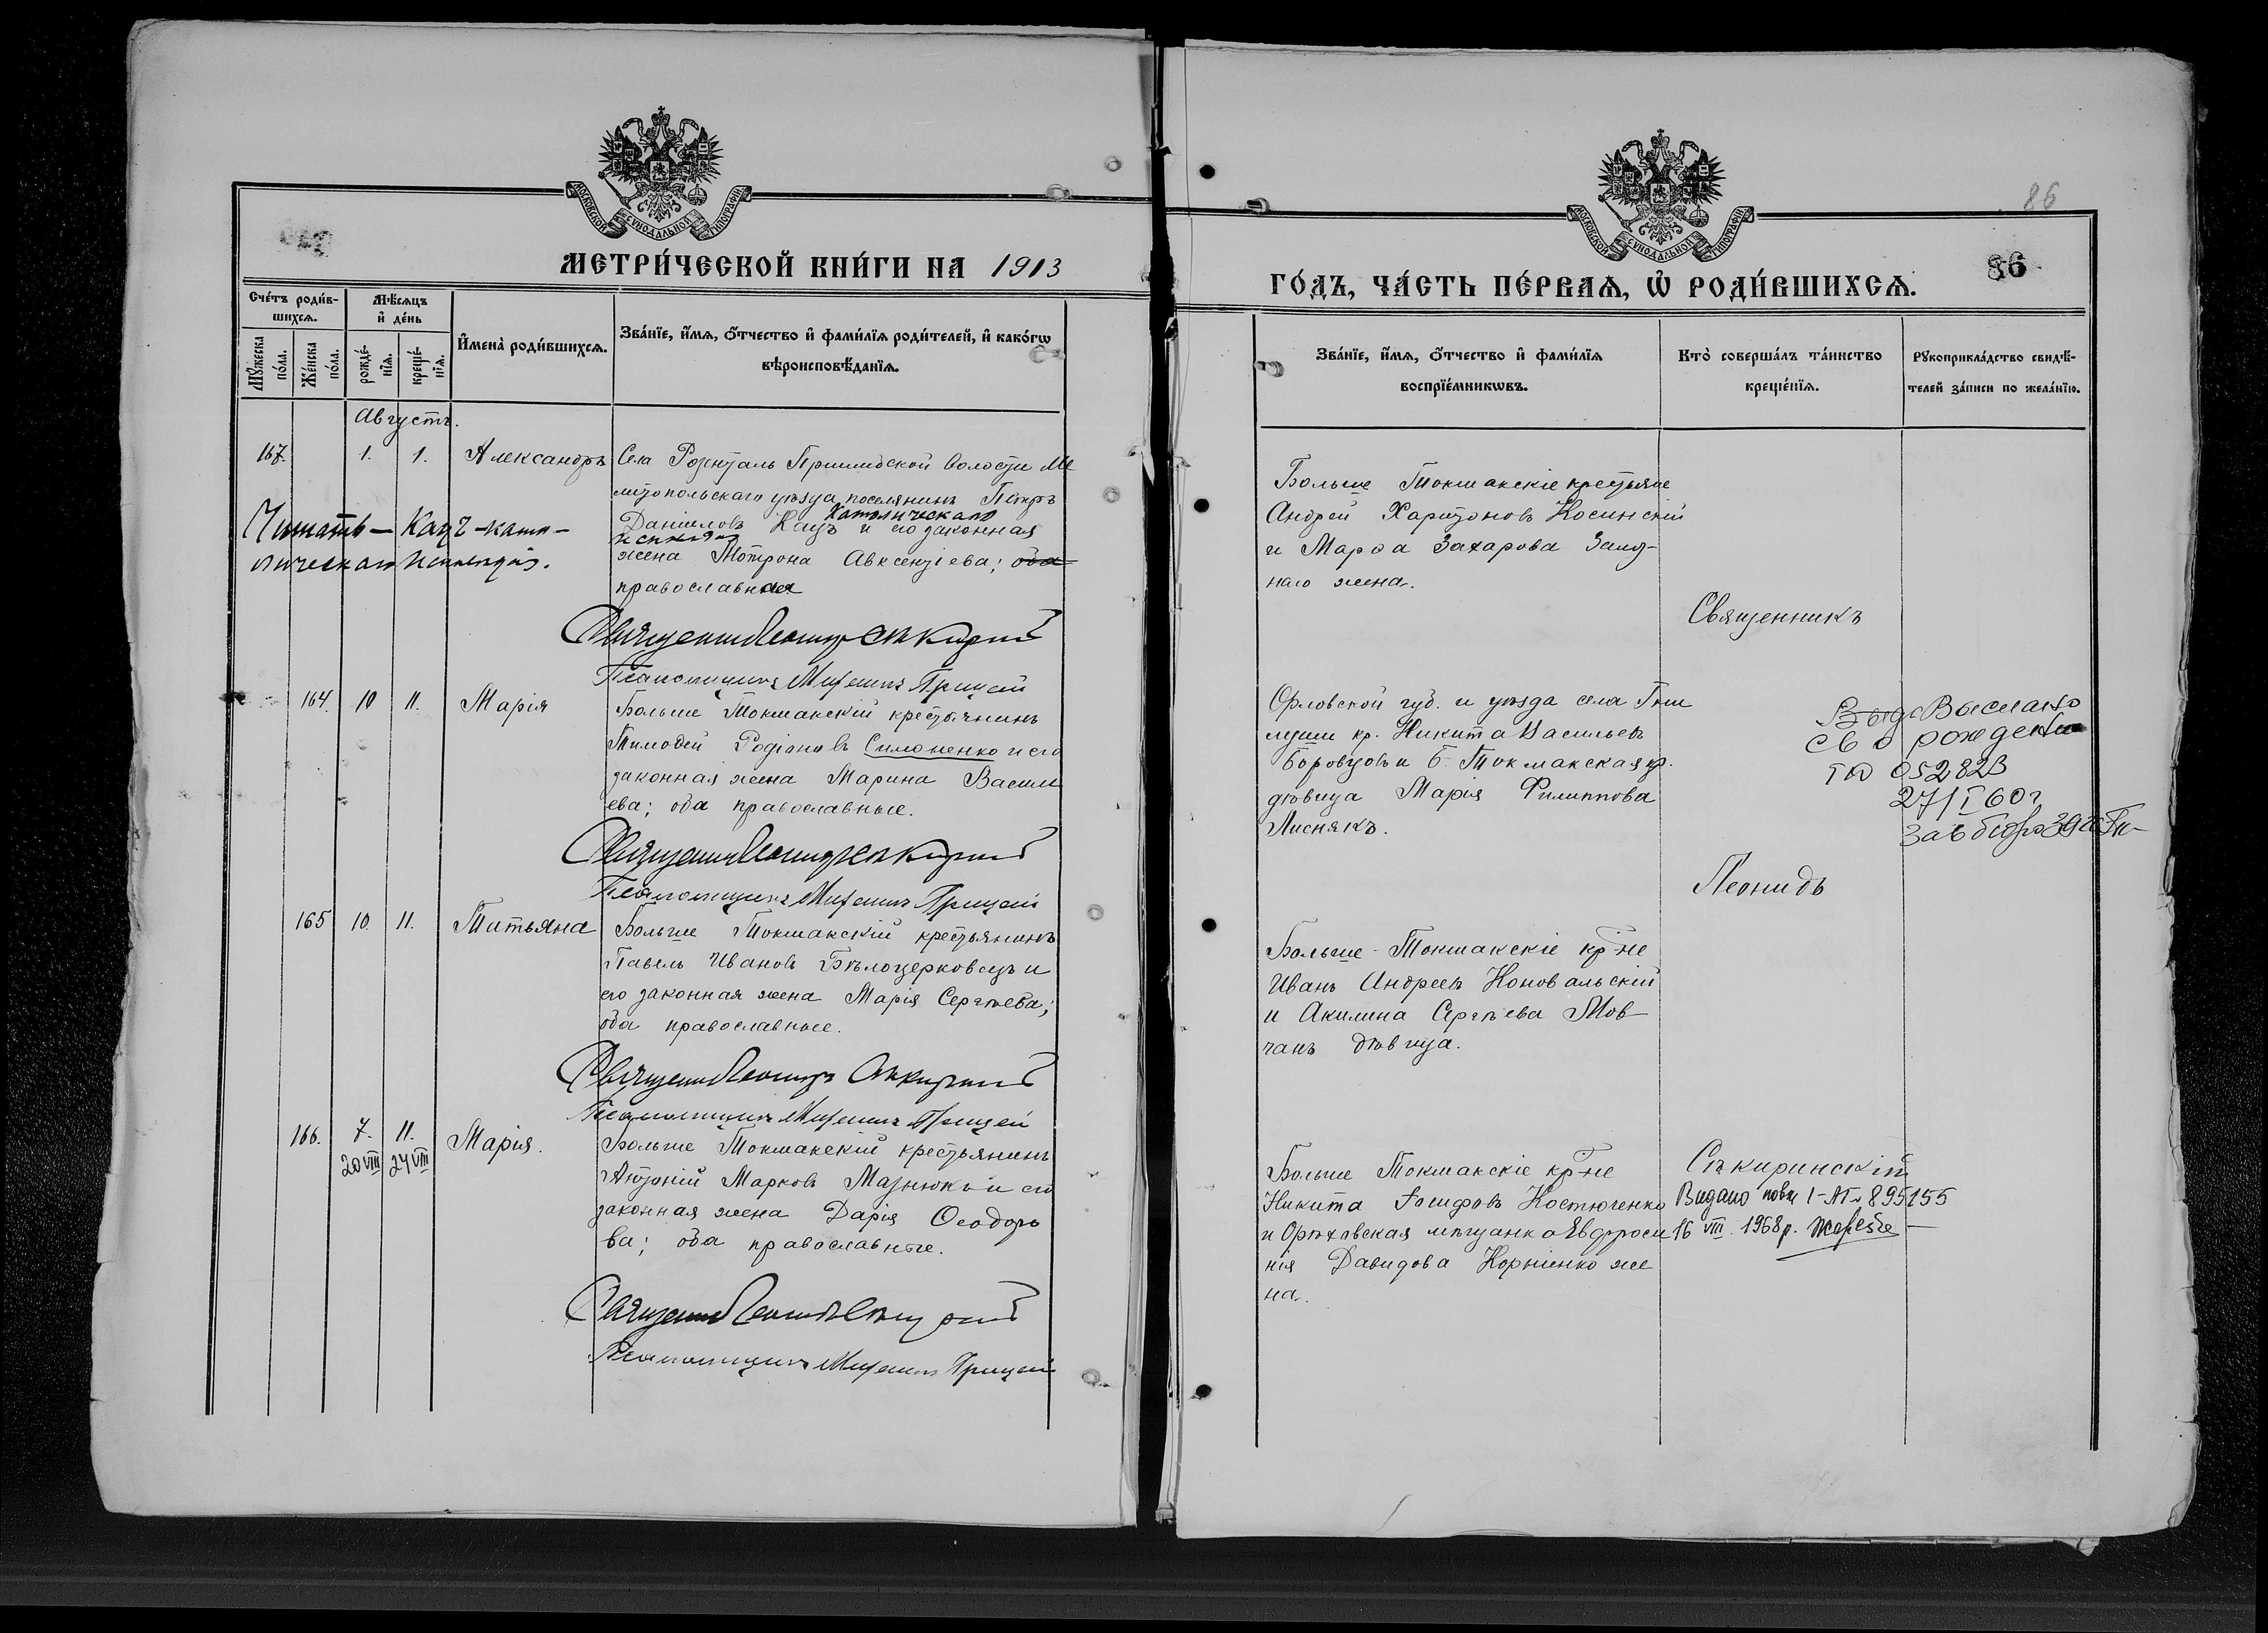 МОСКОВСКОЙ СѴНОДАЛЬНОЙ ТИПОГРАФІИ
МЕТРИ́ЧЕСКОЙ КНИ́ГИ НА 1913
Сче́тъ роди́в-
шихсѧ.
Мѣ́сяцъ
и҆ де́нь
Мꙋ́жеска
по́ла.
Же́нска
по́ла.
рожде́-
нїѧ.
креще́-
нїѧ.
И҆мена̀ роди́вшихсѧ.
Зва́нїе, и҆́мѧ, ѻ҆́тчество и҆ фами́лїѧ роди́телей, и҆ како́гѡ
вѣроисповѣ́данїѧ.
Августъ.
167. 1. 1. Александръ
Села Розенталь Пришибской Волости Ме
литопольскаго уѣзда поселянинъ Петръ
Католическаго
Даніиловъ Кацъ и его законная
исповѣд
жена Мотрона Авксентіева; оба
православная
Читать — Кацъ — като-
лическаго исповѣд.
Священникъ Леонидъ Сѣкиринскій
Псаломщикъ Михаилъ Грицай
164. 10 11. Марія
Больше Токмакскій крестьянинъ
Тимоѳей Родіоновъ Симоненко и его
законная жена Марина Василі
ева; оба православные.
Священникъ Леонидъ Сѣкиринскій
Псаломщикъ Михаилъ Грицай
165 10. 11. Татьяна
Больше Токмакскій крестьянинъ
Павелъ Ивановъ Бѣлоцерковецъ и
его законная жена Марія Сергѣева;
оба православные.
Священникъ Леонидъ Сѣкиринскій
Псаломщикъ Михаилъ Грицай
166. 7. 11. Марія.
20 VIII 24 VIII
Больше Токмакскій крестьянинъ
Антоній Марковъ Мазнюкъ и его
законная жена Дарія Ѳеодоро
ва; оба православные.
Священникъ Леонидъ Сѣкиринскій
Псаломщикъ Михаилъ Грицай
86
МОСКОВСКОЙ СѴНОДАЛЬНОЙ ТИПОГРАФІИ
86
ГО́ДЪ, ЧА́СТЬ ПЕ́РВАѦ, Ѽ РОДИ́ВШИХСѦ.
Зва́нїе, и҆́мѧ, ѻ҆́тчество и҆ фами́лїѧ
воспрїе́мникѡвъ.
Кто̀ соверша́лъ та́инство
креще́нїѧ.
Рꙋкоприкла́дство свидѣ́-
телей за́писи по жела́нїю.
Больше Токмакскіе крестьяне
Андрей Харитоновъ Косинскій
и Марѳа Захарова
наго жена.
Священникъ
Орловской губ. и уѣзда села Гни
луши кр. Никита Васильевъ
Боровцовъ и Б. Токмакская кр.
дѣвица Марія Филиппова
Лиснякъ.
Выслано
св о рождении
052823
27/I 60г
Зав бюро
Леонидъ
Больше-Токмакскіе кр-не
Иванъ Андреевъ Коновальскій
и Акилина Сергѣева Мов-
чанъ дѣвица.
Больше Токмакскіе кр-не
Никита Іосифовъ Костюченко
и Орѣховская мѣщанка Евфроси
нія Давидова Корніенко же
на.
Сѣкиринскій
Видано повт I-АП № 895155
16 VIII. 1968р.